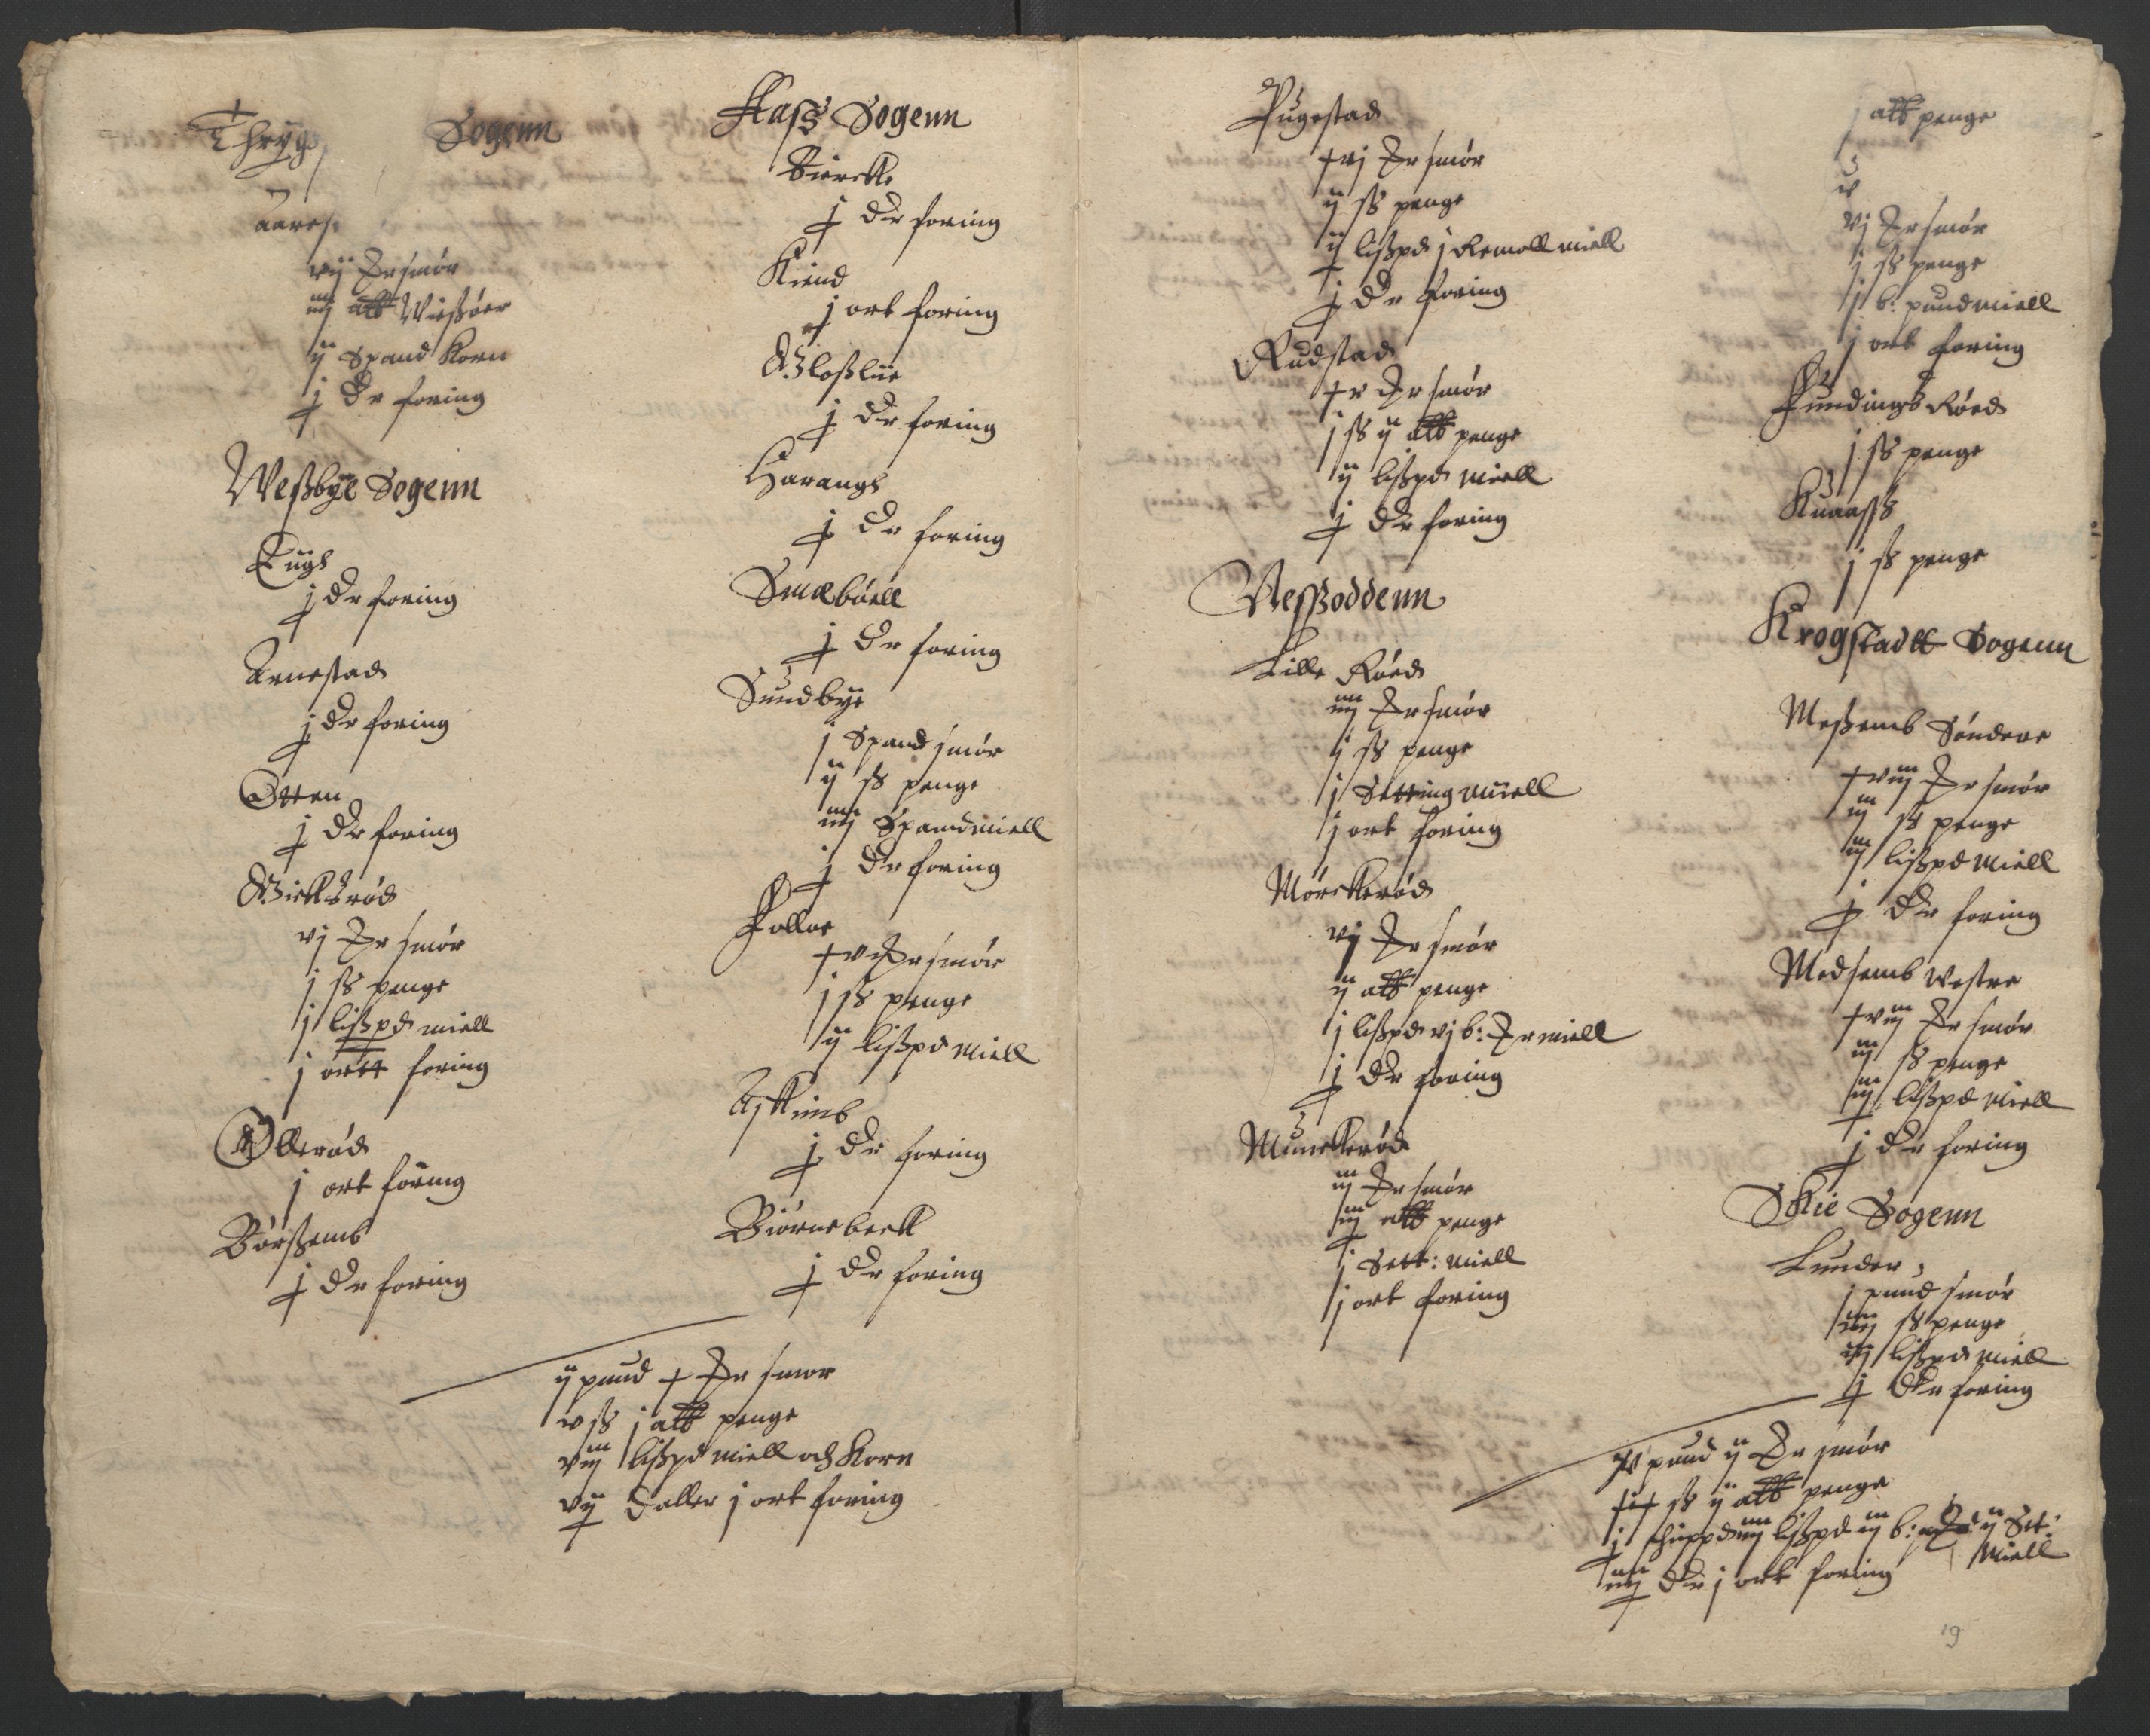 Thryg Sogenn
aares
vij Dr smór
iiij alb Vißóer
ij Spand Korn
j Dr foring
Weßbye Sogenn
Tugs
j Dr foring
Arnestad
j Dr foring
Otten
j Dr foring
Gieksród
vj Dr smór
j ß penge
j lißpd miell
j ortt foring
Olleród
j ort foring
Bórßemb
j Dr foring
Aass Sogenn
Siercke
j Dr foring
Kiend
j ort foring
Gloßlie
j Dr foring
Harangs
j Dr foring
Smebóell
j Dr foring
Sundbye
j Spand smór
ij ß penge
iiij Spand miell
j Dr foring
Folloe
+v Dr smór
j ß penge
ij lißpd miell
Askimb
j Dr foring
Biórnebeck
j Dr foring
ij pund + Dr smor
v ß j alb penge
viij lißpd miell och Korn
vij Daller j ort foring
Pugestad
+vj Dr smór
ij ß penge
ij lißpd j Remoll miell
j Dr foring
Rudstad
+v Dr smór
j ß ij alb penge
ij lißpd miell
j Dr foring
Neßoddenn
Lille Róed
iiij Dr smór
j ß penge
j Setting miell
j ort foring
Mórckeród
vj Dr smór
ij alb penge
j lißpd vj b: Dr miell
j Dr foring
Munckeród
iij Dr smór
iij alb penge
j Sett: miell
j ort foring
j alb penge
vj Dr smór
j ß penge
j b: pund miell
j ort foring
Fundings Róed
j ß penge
Kuaass
j ß penge
Krogstadtt Sogenn
Meßemb Sóndere
+viij Dr smór
iij ß penge
iij lißpd miell
j Dr foring
Medsemb Vestre
+viij Dr smór
iij ß penge
iij lißpd miell
j Dr foring
Skie Sogenn
Lunder
j pund smór
iiij ß penge
iij lißpd miell
j Dr foring
iv pund ij Dr smór
+i+ ß ij alb penge
j skippd iiij lißpd iij b: ij Set:
miell
iiij Dr j ort foring
19